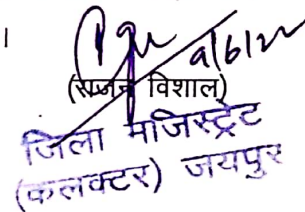 ।
9/6/22
(राजन विशाल)
जिला मजिस्ट्रेट
(कलक्टर) जयपुर